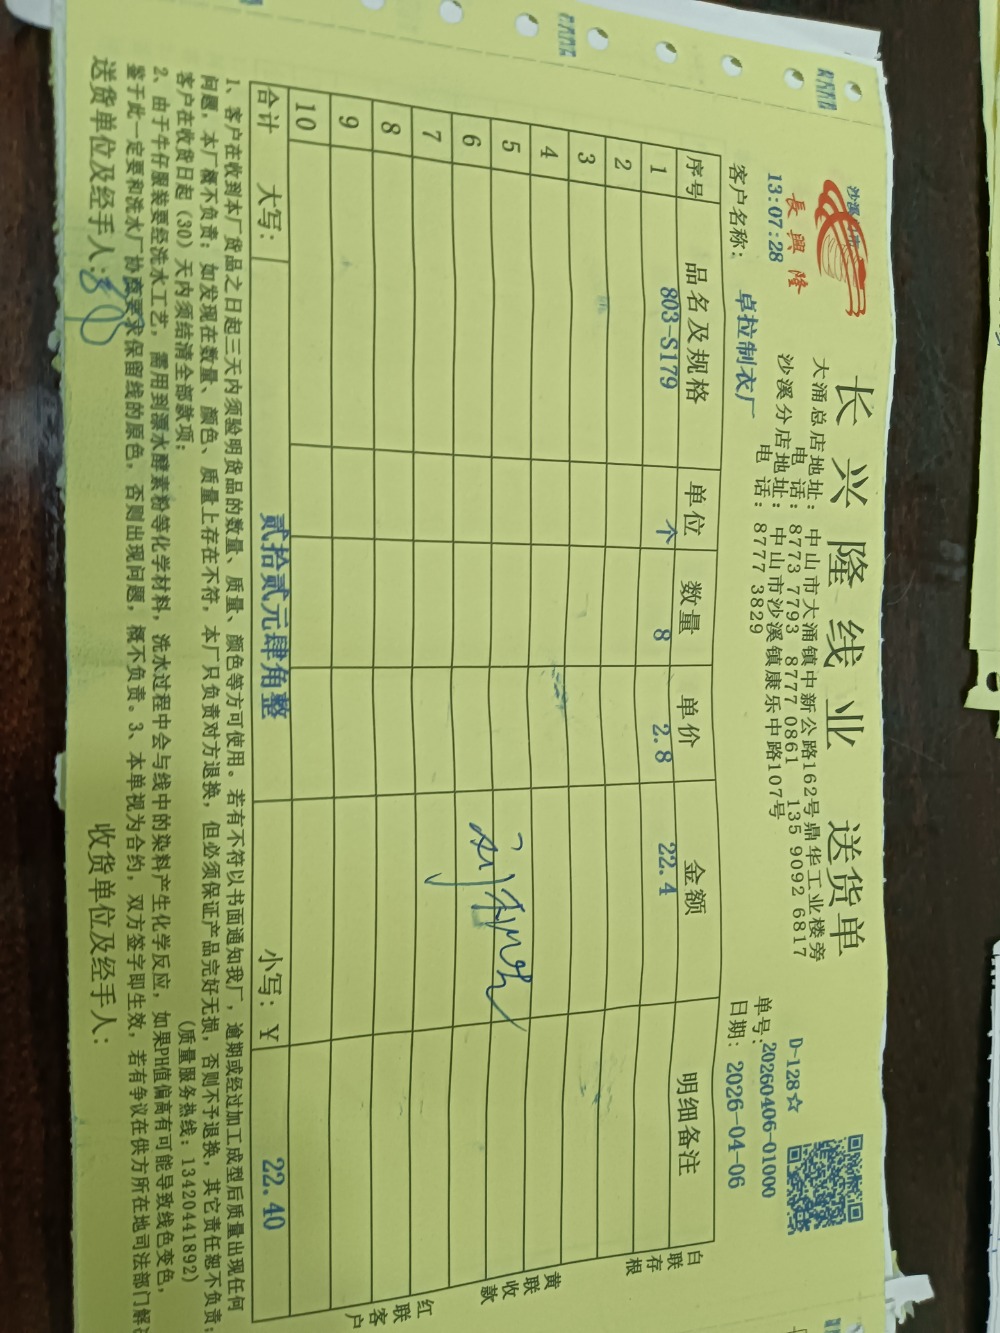 長興隆
13:07:28
长兴隆线业 送货单
大涌总店地址：中山市大涌镇中新公路162号鼎华工业楼旁
电 话：8773 7793 8777 0861 135 9092 6817
沙溪分店地址：中山市沙溪镇康乐中路107号
电 话：8777 3829
D-128☆
单号：20260406-01000
客户名称：卓拉制衣厂 日期：2026-04-06
序号 品名及规格 单位 数量 单价 金额 明细备注
1 803-S179 个 8 2.8 22.4
2
3
4
5
6
7
8
9
10
合计 大写：贰拾贰元肆角整 小写：¥ 22.40
白联存根
黄联收款
红联客户
1、客户在收到本厂货品之日起三天内须验明货品的数量、质量、颜色等方可使用。若有不符以书面通知我厂，逾期或经过加工成型后质量出现任何
问题，本厂概不负责；如发现在数量、颜色、质量上存在不符，本厂只负责对方退换，但必须保证产品完好无损，否则不予退换，其它责任恕不负责；
客户在收货日起（30）天内须结清全部款项； （质量服务热线：13420441892）
2、由于牛仔服装要经洗水工艺，需用到漂水酵素粉等化学材料，洗水过程中会与线中的染料产生化学反应，如果PH值偏高有可能导致线色变色，
鉴于此一定要和洗水厂协商要求保留线的原色，否则出现问题，概不负责。3、本单视为合约，双方签字即生效，若有争议在供方所在地司法部门解
送货单位及经手人： 收货单位及经手人：